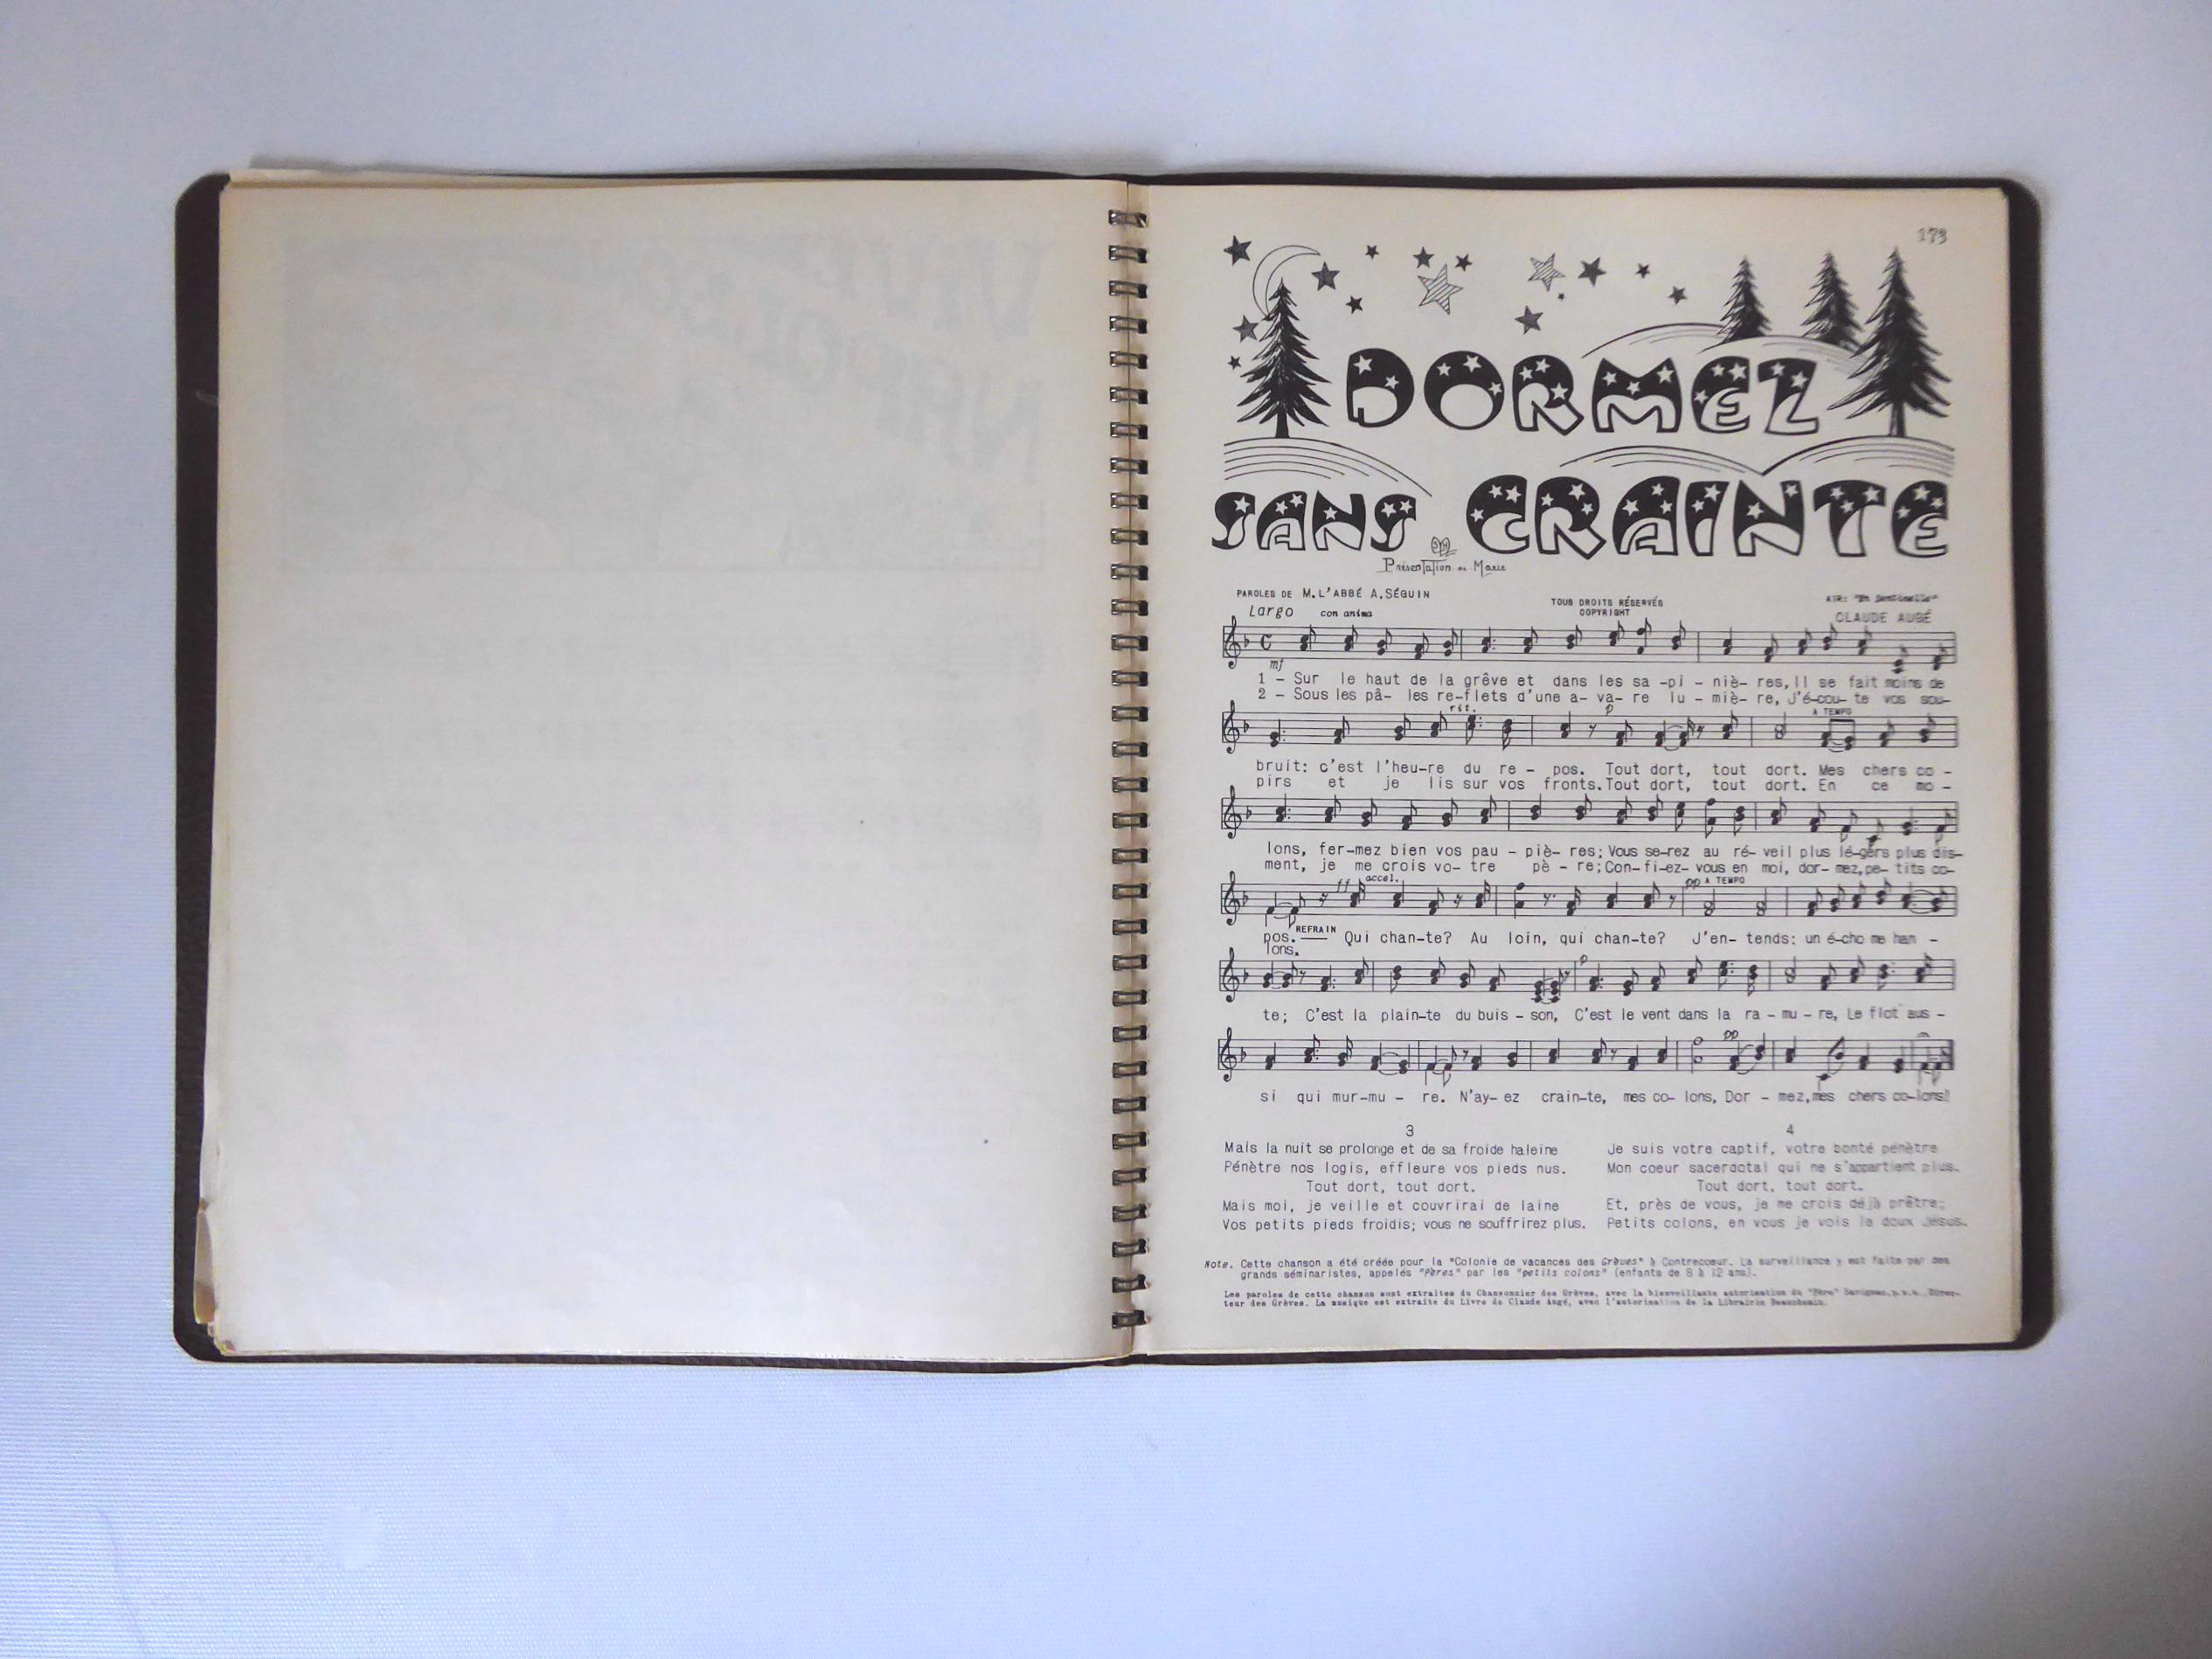 173
DORMEZ
SANS CRAINTE
Présentation de Marie
PAROLES DE M. L'ABBÉ A. SÉGUIN
TOUS DROITS RÉSERVÉS
COPYRIGHT
AIR: "En Sentinelle"
CLAUDE AUGÉ
Largo con anima
mf
1 - Sur le haut de la grêve et dans les sa -pi - niè- res, Il se fait moins de
2 - Sous les pâ- les re-flets d'une a- va- re lu - miè- re, J'é-cou- te vos sou-
rit. p A TEMPO
bruit: c'est l'heu-re du re - pos. Tout dort, tout dort. Mes chers co -
pirs et je lis sur vos fronts. Tout dort, tout dort. En ce mo -
lons, fer-mez bien vos pau - piè- res; Vous se-rez au ré- veil plus lé-gers plus dis-
ment, je me crois vo- tre pè - re; Con-fi-ez- vous en moi, dor- mez, pe- tits co-
ff accel. pp A TEMPO
pos. REFRAIN Qui chan-te? Au loin, qui chan-te? J'en- tends: un é-cho me han -
lons.
p
te; C'est la plain-te du buis - son, C'est le vent dans la ra - mu - re, Le flot aus -
pp
si qui mur-mu - re. N'ay- ez crain-te, mes co- lons, Dor - mez, mes chers co-lons!
3
Mais la nuit se prolonge et de sa froide haleine
Pénètre nos logis, effleure vos pieds nus.
Tout dort, tout dort.
Mais moi, je veille et couvrirai de laine
Vos petits pieds froidis; vous ne souffrirez plus.
4
Je suis votre captif, votre bonté pénètre
Mon coeur sacerdotal qui ne s'appartient plus.
Tout dort, tout dort.
Et, près de vous, je me crois déjà prêtre;
Petits colons, en vous je vois le doux Jésus.
Note. Cette chanson a été créée pour la "Colonie de vacances des Grèves" à Contrecoeur. La surveillance y est faite par des
grands séminaristes, appelés "Pères" par les "petits colons" (enfants de 8 à 12 ans).
Les paroles de cette chanson sont extraites du Chansonnier des Grèves, avec la bienveillante autorisation du "Père" Savignac, p.s.s., Direc-
teur des Grèves. La musique est extraite du Livre de Claude Augé, avec l'autorisation de la Librairie Beauchemin.